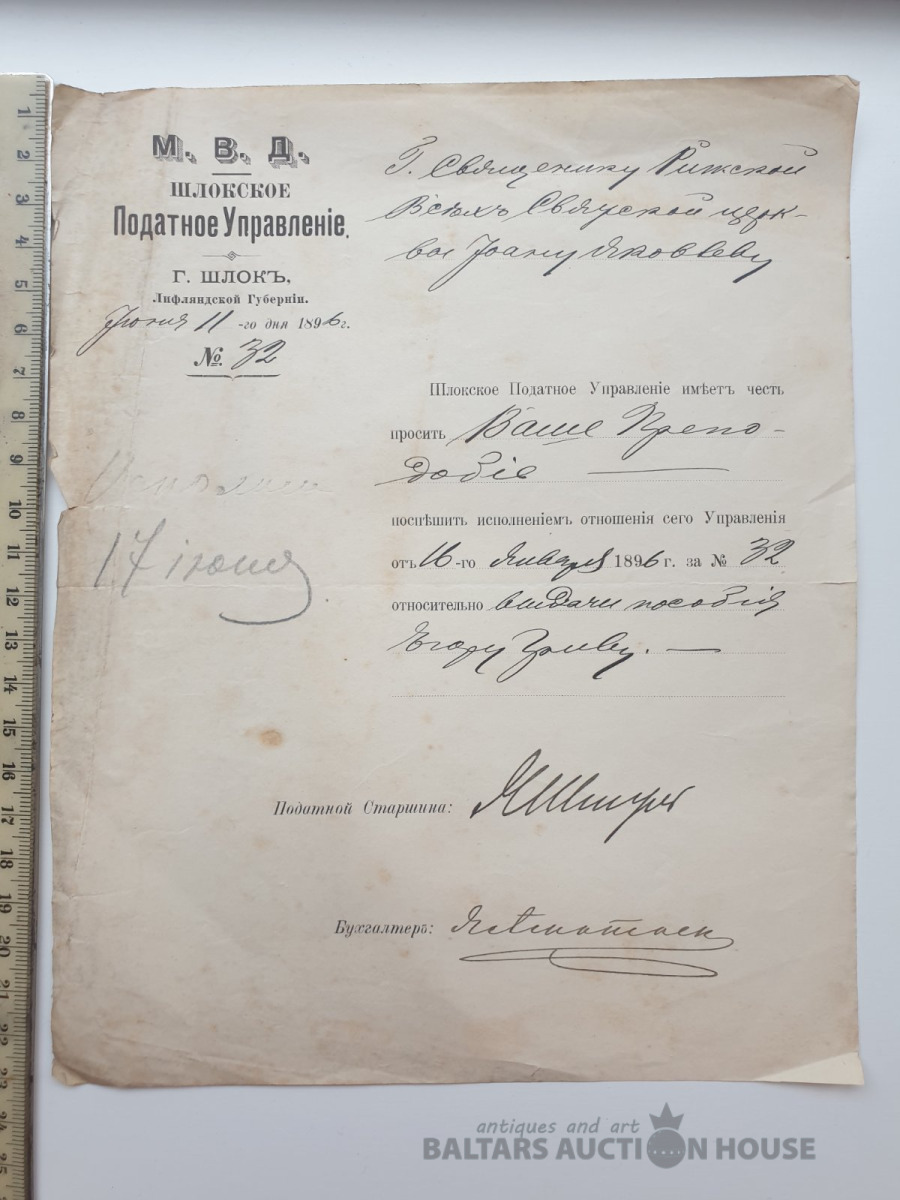 М. В. Д.
ШЛОКСКОЕ
Податное Управленіе.
Г. ШЛОКЪ,
Лифляндской Губерніи.
Іюня 11 -го дня 1896 г.
№ 32
Г. Священнику Рижской
Всѣхъ Святской церк-
ви Іоану Яковлеву
Шлокское Податное Управленіе имѣетъ честь
просить Ваше Препо-
добіе
поспѣшить исполненіемъ отношенія сего Управленія
отъ 16 -го Января 1896 г. за № 32
относительно выдачи пособія
Егору
17 іюня
Податной Старшина:
Бухгалтеръ:
1
2
3
4
5
6
7
8
9
10
11
12
13
14
15
16
17
18
19
20
21
22
23
24
25
antiques and art
BALTARS AUCTION HOUSE